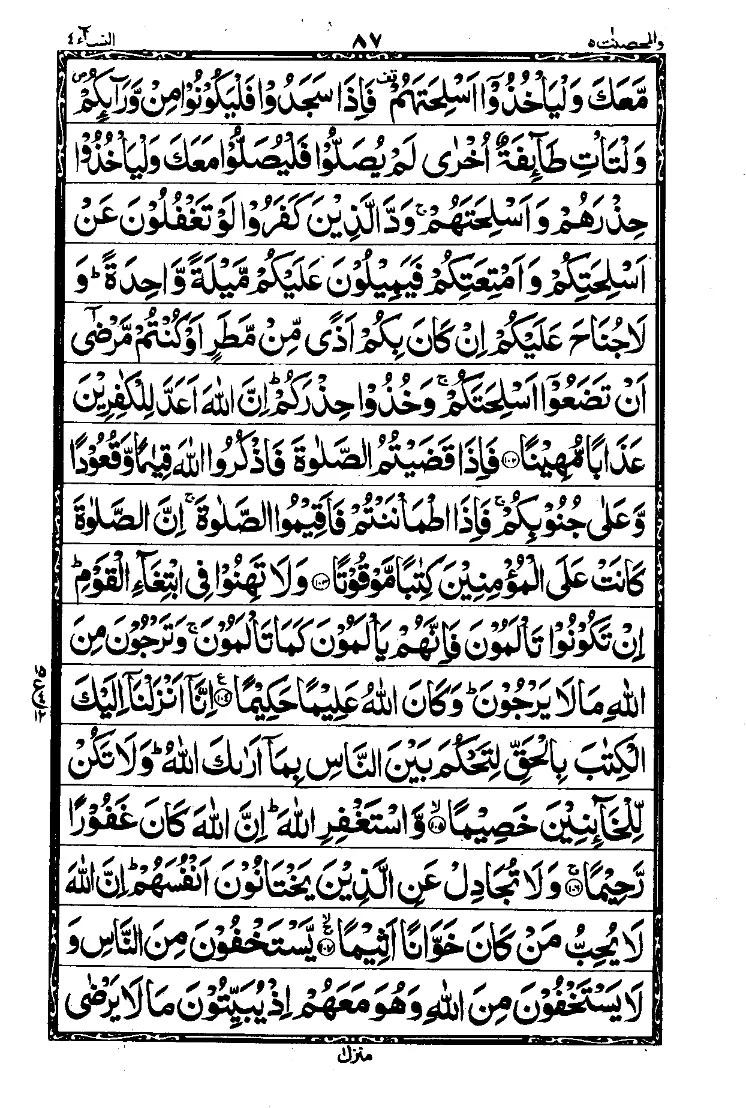 والمحصنت ٥ ٨٧ النسآء ٤
مَّعَكَ وَلْيَاْخُذُوْٓا اَسْلِحَتَهُمْ قف فَاِذَا سَجَدُوْا فَلْيَكُوْنُوْا مِنْ وَّرَآئِكُمْ ص
وَلْتَاْتِ طَآئِفَةٌ اُخْرٰى لَمْ يُصَلُّوْا فَلْيُصَلُّوْا مَعَكَ وَلْيَاْخُذُوْا
حِذْرَهُمْ وَاَسْلِحَتَهُمْ ۚ وَدَّ الَّذِيْنَ كَفَرُوْا لَوْ تَغْفُلُوْنَ عَنْ
اَسْلِحَتِكُمْ وَاَمْتِعَتِكُمْ فَيَمِيْلُوْنَ عَلَيْكُمْ مَّيْلَةً وَّاحِدَةً ؕ وَ
لَا جُنَاحَ عَلَيْكُمْ اِنْ كَانَ بِكُمْ اَذًى مِّنْ مَّطَرٍ اَوْ كُنْتُمْ مَّرْضٰٓى
اَنْ تَضَعُوْٓا اَسْلِحَتَكُمْ ۚ وَخُذُوْا حِذْرَكُمْ ؕ اِنَّ اللّٰهَ اَعَدَّ لِلْكٰفِرِيْنَ
عَذَابًا مُّهِيْنًا ۝١٠٢ فَاِذَا قَضَيْتُمُ الصَّلٰوةَ فَاذْكُرُوا اللّٰهَ قِيٰمًا وَّقُعُوْدًا
وَّعَلٰى جُنُوْبِكُمْ ۚ فَاِذَا اطْمَاْنَنْتُمْ فَاَقِيْمُوا الصَّلٰوةَ ۚ اِنَّ الصَّلٰوةَ
كَانَتْ عَلَى الْمُؤْمِنِيْنَ كِتٰبًا مَّوْقُوْتًا ۝١٠٣ وَلَا تَهِنُوْا فِى ابْتِغَآءِ الْقَوْمِ ؕ
اِنْ تَكُوْنُوْا تَاْلَمُوْنَ فَاِنَّهُمْ يَاْلَمُوْنَ كَمَا تَاْلَمُوْنَ ۚ وَتَرْجُوْنَ مِنَ
اللّٰهِ مَا لَا يَرْجُوْنَ ؕ وَكَانَ اللّٰهُ عَلِيْمًا حَكِيْمًا ۝١٠٤ ع اِنَّآ اَنْزَلْنَآ اِلَيْكَ
الْكِتٰبَ بِالْحَقِّ لِتَحْكُمَ بَيْنَ النَّاسِ بِمَآ اَرٰىكَ اللّٰهُ ؕ وَلَا تَكُنْ
لِّلْخَآئِنِيْنَ خَصِيْمًا ۝١٠٥ ۙ وَّاسْتَغْفِرِ اللّٰهَ ؕ اِنَّ اللّٰهَ كَانَ غَفُوْرًا
رَّحِيْمًا ۝١٠٦ ۚ وَلَا تُجَادِلْ عَنِ الَّذِيْنَ يَخْتَانُوْنَ اَنْفُسَهُمْ ؕ اِنَّ اللّٰهَ
لَا يُحِبُّ مَنْ كَانَ خَوَّانًا اَثِيْمًا ۝١٠٧ ۙ يَّسْتَخْفُوْنَ مِنَ النَّاسِ وَ
لَا يَسْتَخْفُوْنَ مِنَ اللّٰهِ وَهُوَ مَعَهُمْ اِذْ يُبَيِّتُوْنَ مَا لَا يَرْضٰى
منزل